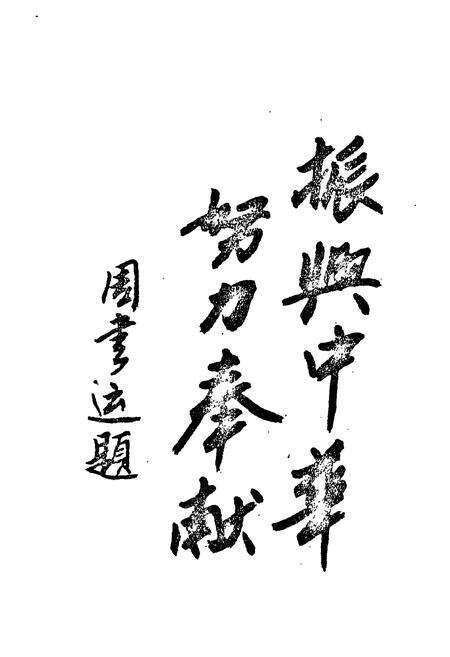 振興中華
努力奉献
周书运題